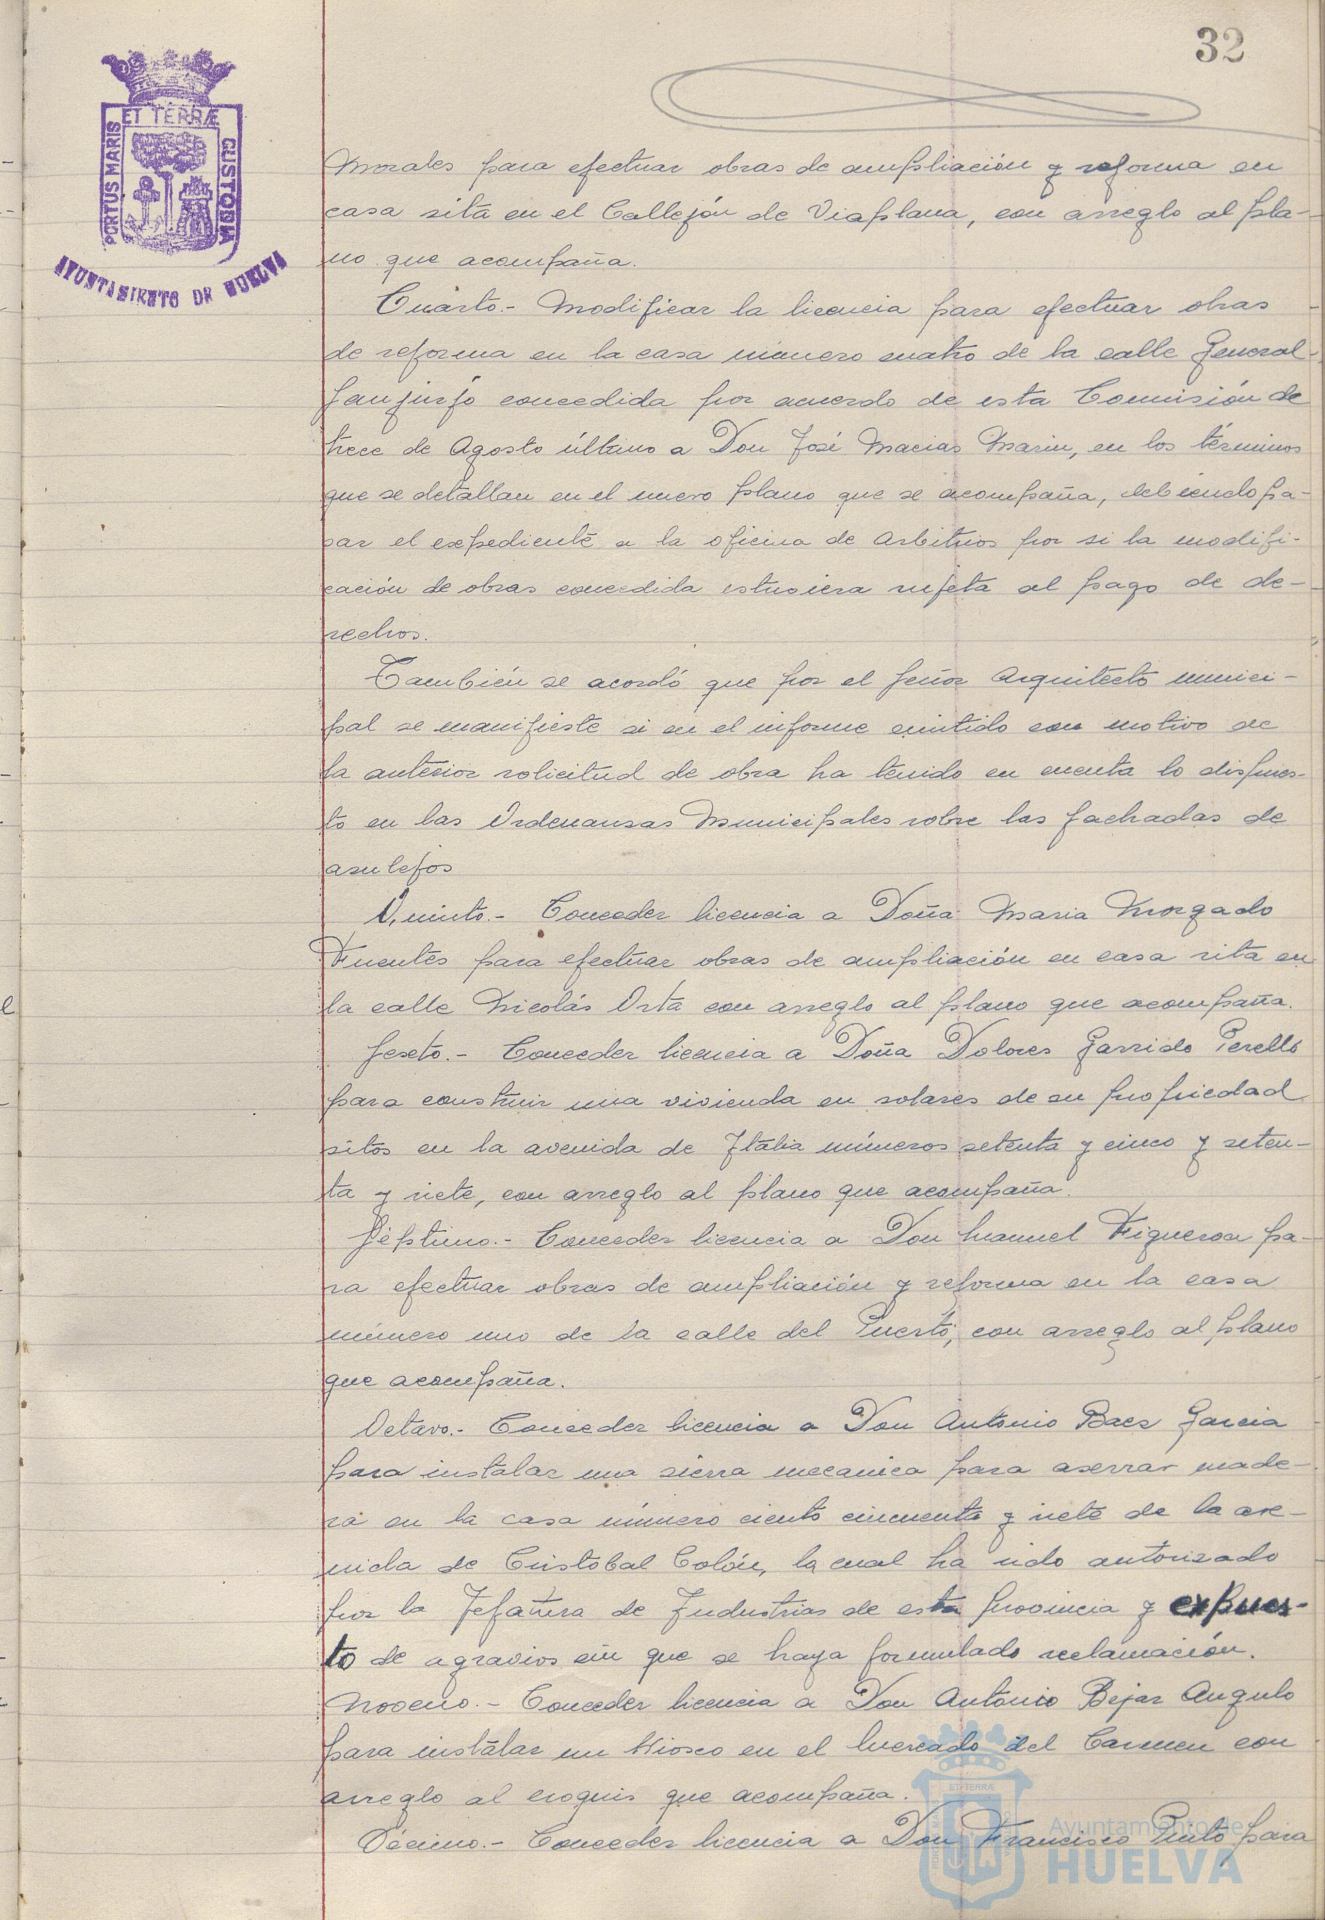 32
ET TERRÆ
PORTUS MARIS
CUSTODIA
AYUNTAMIENTO DE HUELVA
Morales para efectuar obras de ampliación y reforma en
casa sita en el Callejón de Viaplana, con arreglo al pla-
no que acompaña.
Cuarto.- Modificar la licencia para efectuar obras
de reforma en la casa número cuatro de la calle General
Sanjurjo concedida por acuerdo de esta Comisión de
trece de Agosto último a Don José Macias Marin, en los términos
que se detallan en el nuevo plano que se acompaña, debiendo pa-
sar el expediente a la oficina de Arbitrios por si la modifi-
cación de obras concedida estuviera sujeta al pago de de-
rechos.
También se acordó que por el Señor Arquitecto munici-
pal se manifieste si en el informe emitido con motivo de
la anterior solicitud de obra ha tenido en cuenta lo dispues-
to en las Ordenansas Municipales sobre las fachadas de
asulejos
Quinto.- Conceder licencia a Doña Maria Morgado
Fuentes para efectuar obras de ampliación en casa sita en
la calle Nicolás Orta con arreglo al plano que acompaña.
Sexto.- Conceder licencia a Doña Dolores Garrido Perelló
para construir una vivienda en solares de su propiedad
sitos en la avenida de Italia números setenta y cinco y seten-
ta y siete, con arreglo al plano que acompaña.
Séptimo.- Conceder licencia a Don Manuel Figueroa pa-
ra efectuar obras de ampliación y reforma en la casa
número uno de la calle del Puerto, con arreglo al plano
que acompaña.
Octavo.- Conceder licencia a Don Antonio Baez Garcia
para instalar una sierra mecanica para aserrar made-
ra en la casa número ciento cincuenta y siete de la ave-
nida de Cristobal Colón, la cual ha sido autorizado
por la Jefatura de Industrias de esta provincia y expues-
to de agravios sin que se haya formulado reclamación.
Noveno.- Conceder licencia a Don Antonio Bejar Angulo
para instalar un Kiosco en el Mercado del Carmen con
arreglo al croquis que acompaña.
Décimo.- Conceder licencia a Don Francisco Pinto para
Ayuntamiento de
HUELVA